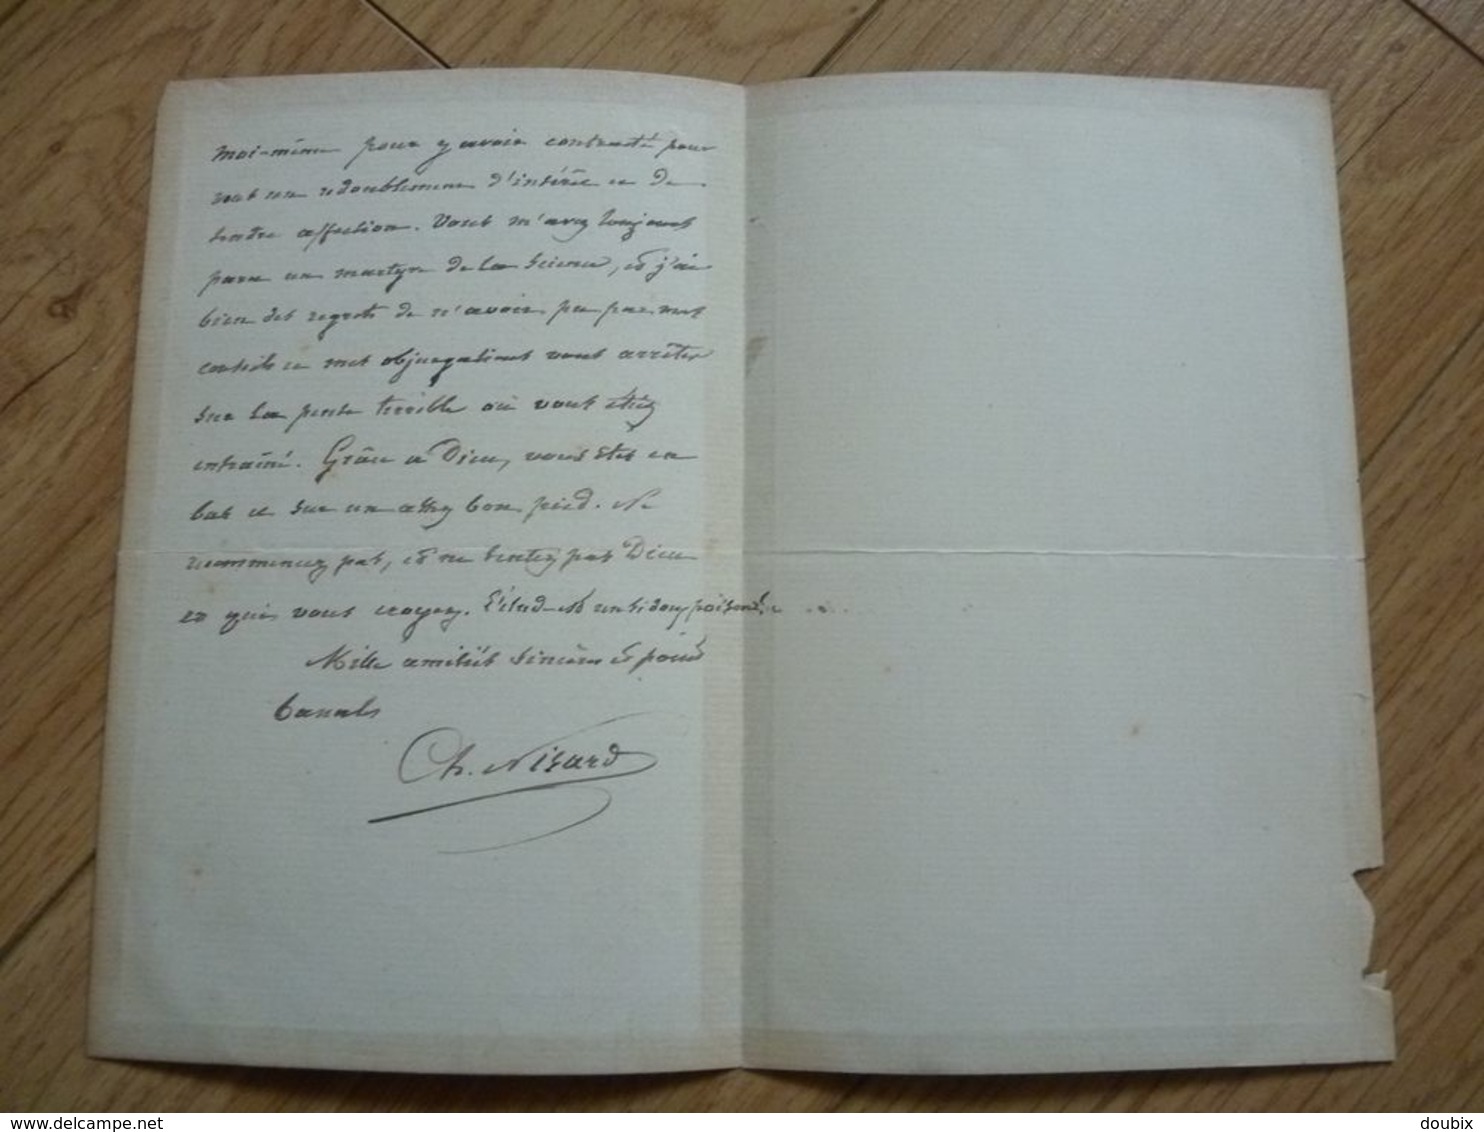 moi-même pour y avoir contracté pour
vous un redoublement d'intérêt et de
tendre affection. Vous m'avez toujours
paru un martyr de la science, et j'ai
bien des regrets de n'avoir pu par mes
conseils et mes objurgations vous arrêter
sur la pente terrible où vous étiez
entraîné. Grâce à Dieu, vous êtes en
bas et sur un assez bon pied. Ne
recommencez pas, et ne tentez pas Dieu
en qui vous croyez. L'étude est un si doux poison
Mille amitiés sincères et point
banales
Ch. Nisard
doubix